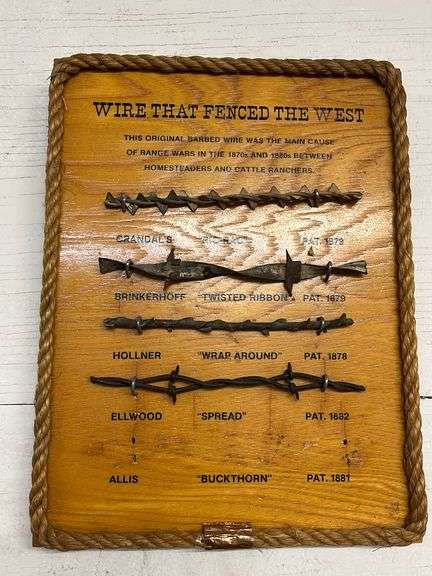 WIRE THAT FENCED THE WEST
THIS ORIGINAL BARBED WIRE WAS THE MAIN CAUSE
OF RANGE WARS IN THE 1870s AND 1880s BETWEEN
HOMESTEADERS AND CATTLE RANCHERS.
CRANDAL'S PAT. 1879
BRINKERHOFF "TWISTED RIBBON" PAT. 1879
HOLLNER "WRAP AROUND" PAT. 1878
ELLWOOD "SPREAD" PAT. 1882
ALLIS "BUCKTHORN" PAT. 1881